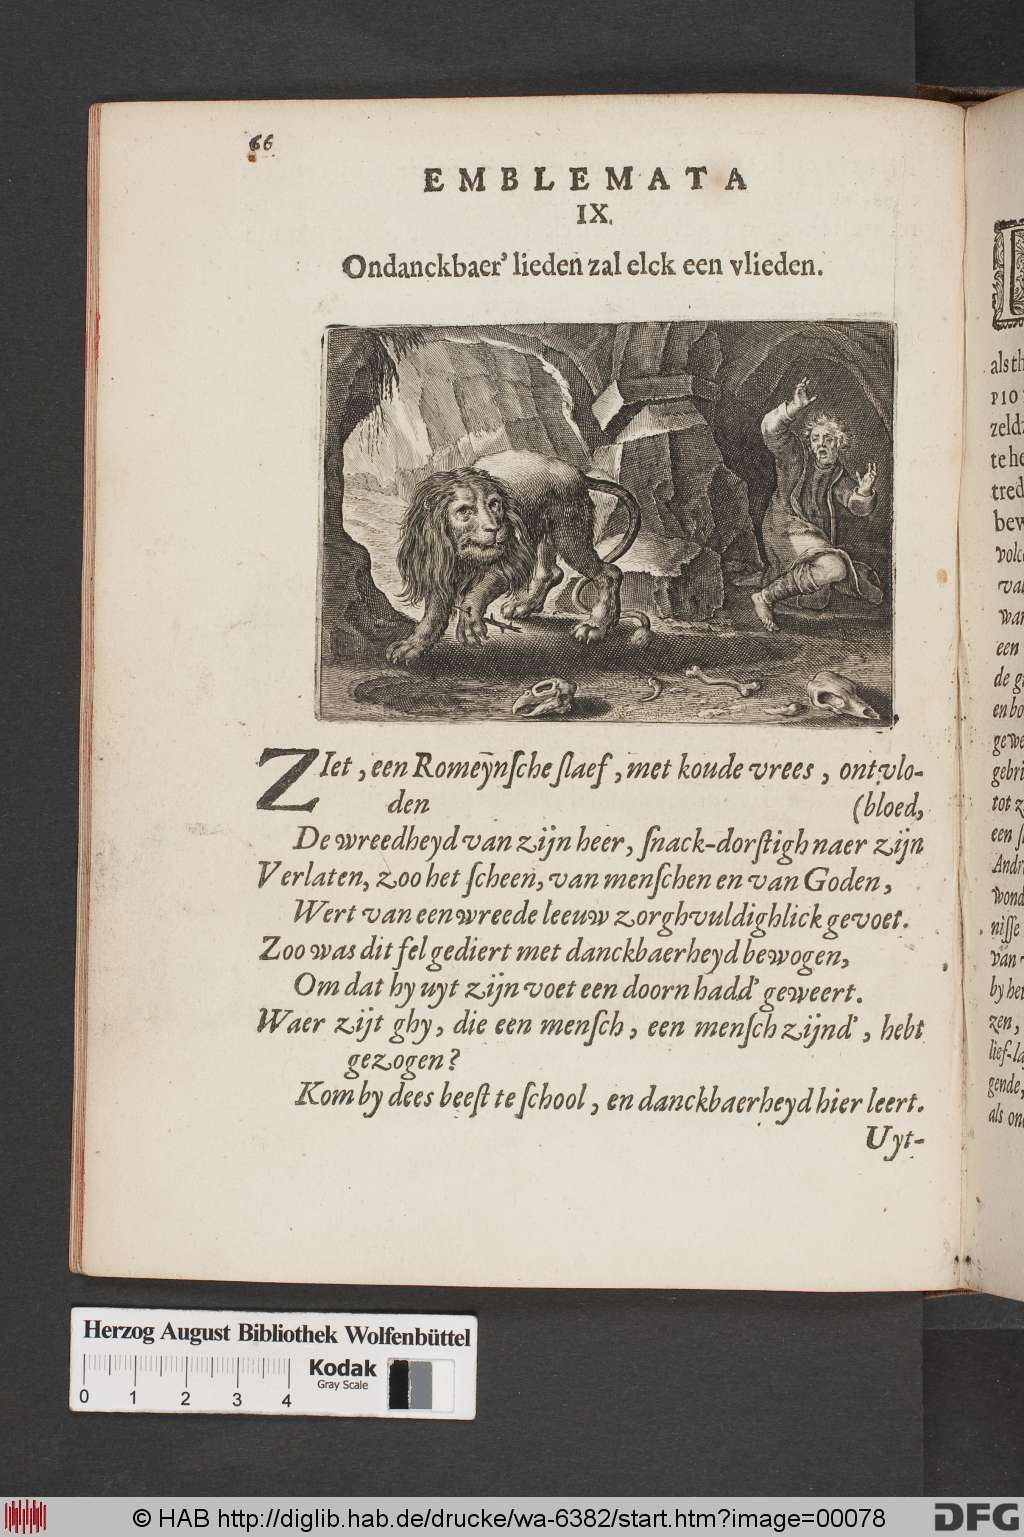 66
EMBLEMATA
IX.
Ondanckbaer' lieden zal elck een vlieden.
ZIet, een Romeÿnſche ſlaef, met koude vrees, ontvlo-
den (bloed,
De wreedheyd van zijn heer, ſnack-dorſtigh naer zijn
Verlaten, zoo het ſcheen, van menſchen en van Goden,
Wert van een wreede leeuw zorghvuldighlick gevoet.
Zoo was dit fel gediert met danckbaerheyd bewogen,
Om dat hy uyt zijn voet een doorn hadd' geweert.
Waer zijt ghy, die een menſch, een menſch zijnd', hebt
gezogen?
Kom by dees beeſt te ſchool, en danckbaerheyd hier leert.
Uyt-
als th
PIO
zeldz
te he
tred
bew
volc
van
war
een
de g
en bo
gewe
gebri
tot z
een ſ
Andr
wond
niſſe
van
by het
zen,
lief-la
gende,
als on
Herzog August Bibliothek Wolfenbüttel
Kodak
Gray Scale
0 1 2 3 4
© HAB http://diglib.hab.de/drucke/wa-6382/start.htm?image=00078
DFG